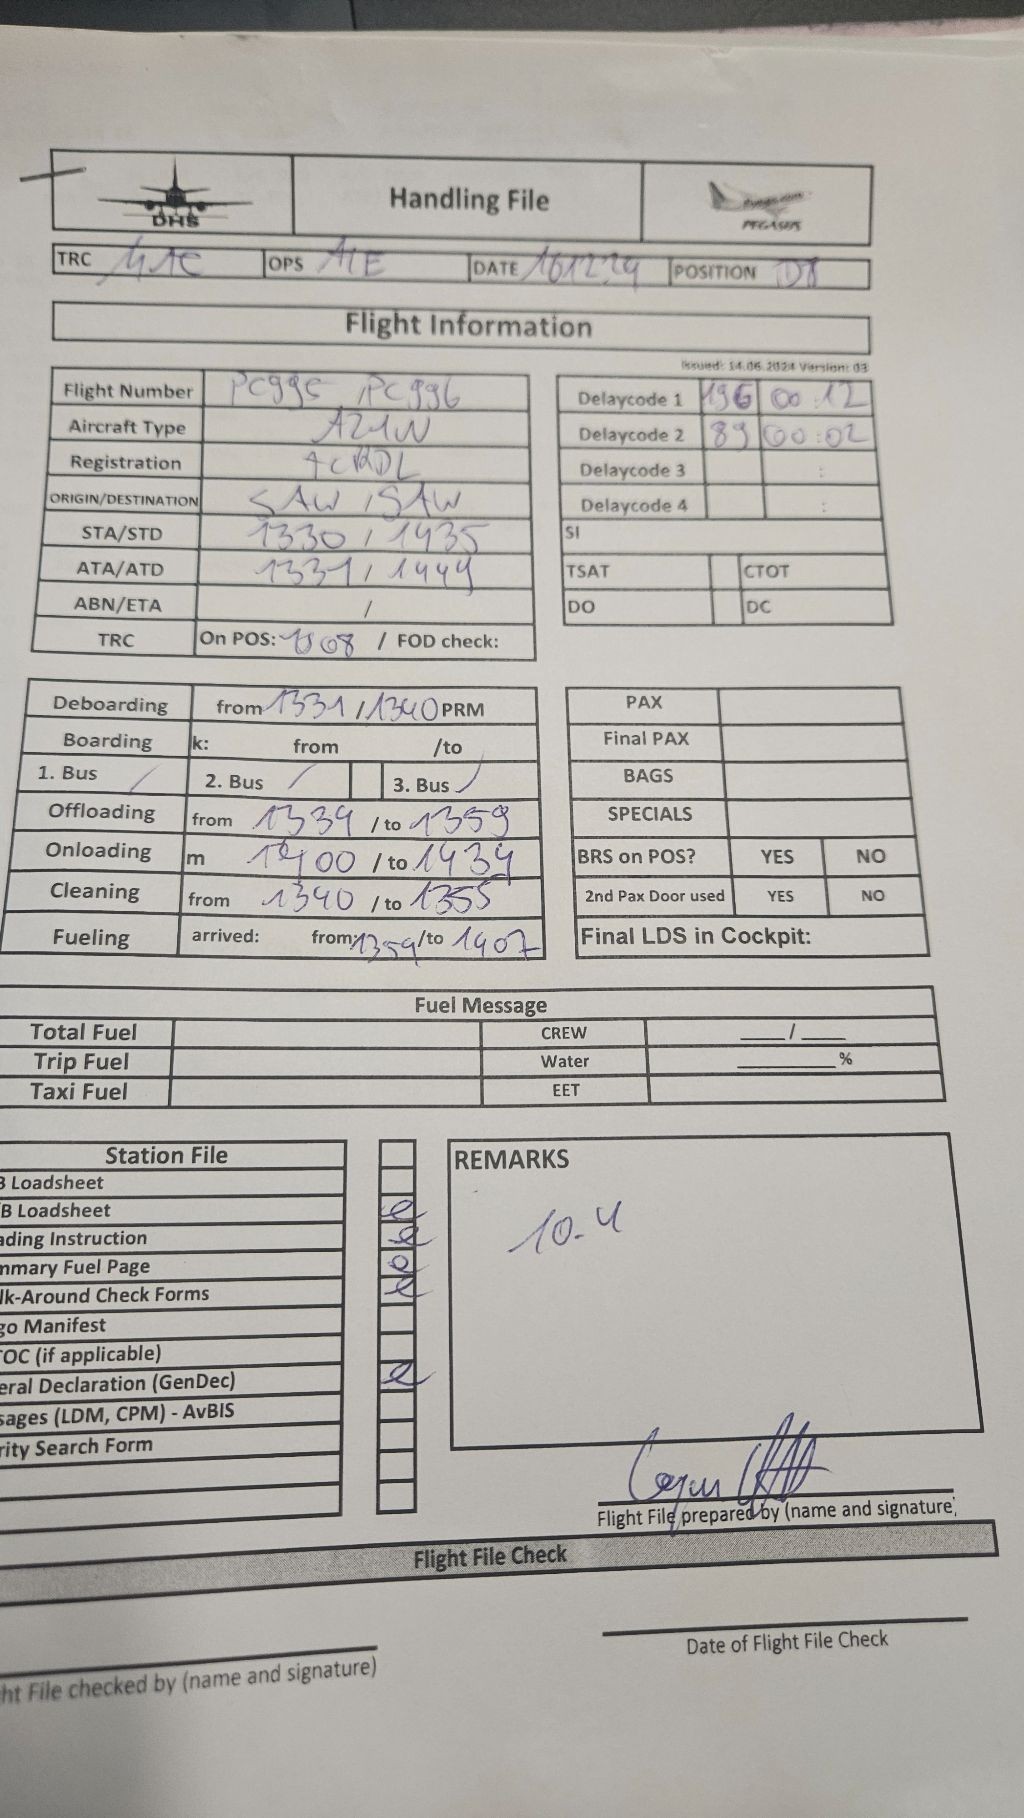 DHS
Handling File
PEGASUS
TRC OPS DATE 161224 POSITION D8
Flight Information
Issued: 14.06.2024 Version: 03
Flight Number PC995 / PC996
Aircraft Type A21N
Registration TCRDL
ORIGIN/DESTINATION SAW / SAW
STA/STD 1330 / 1435
ATA/ATD 1331 / 1449
ABN/ETA /
TRC On POS: / FOD check:
Delaycode 1 19G 00:12
Delaycode 2 89 00:02
Delaycode 3 :
Delaycode 4 :
SI
TSAT CTOT
DO DC
Deboarding from 1331 / 1340 PRM
Boarding k: from /to
1. Bus / 2. Bus / 3. Bus /
Offloading from 1334 / to 1359
Onloading m 1400 / to 1434
Cleaning from 1340 / to 1355
Fueling arrived: from: 1359 /to 1407
PAX
Final PAX
BAGS
SPECIALS
BRS on POS? YES NO
2nd Pax Door used YES NO
Final LDS in Cockpit:
Fuel Message
Total Fuel CREW ___/___
Trip Fuel Water ______%
Taxi Fuel EET
Station File
B Loadsheet
B Loadsheet
ading Instruction
mmary Fuel Page
lk-Around Check Forms
go Manifest
TOC (if applicable)
eral Declaration (GenDec)
sages (LDM, CPM) - AvBIS
rity Search Form
REMARKS
10-4
Flight File prepared by (name and signature)
Flight File Check
ht File checked by (name and signature)
Date of Flight File Check